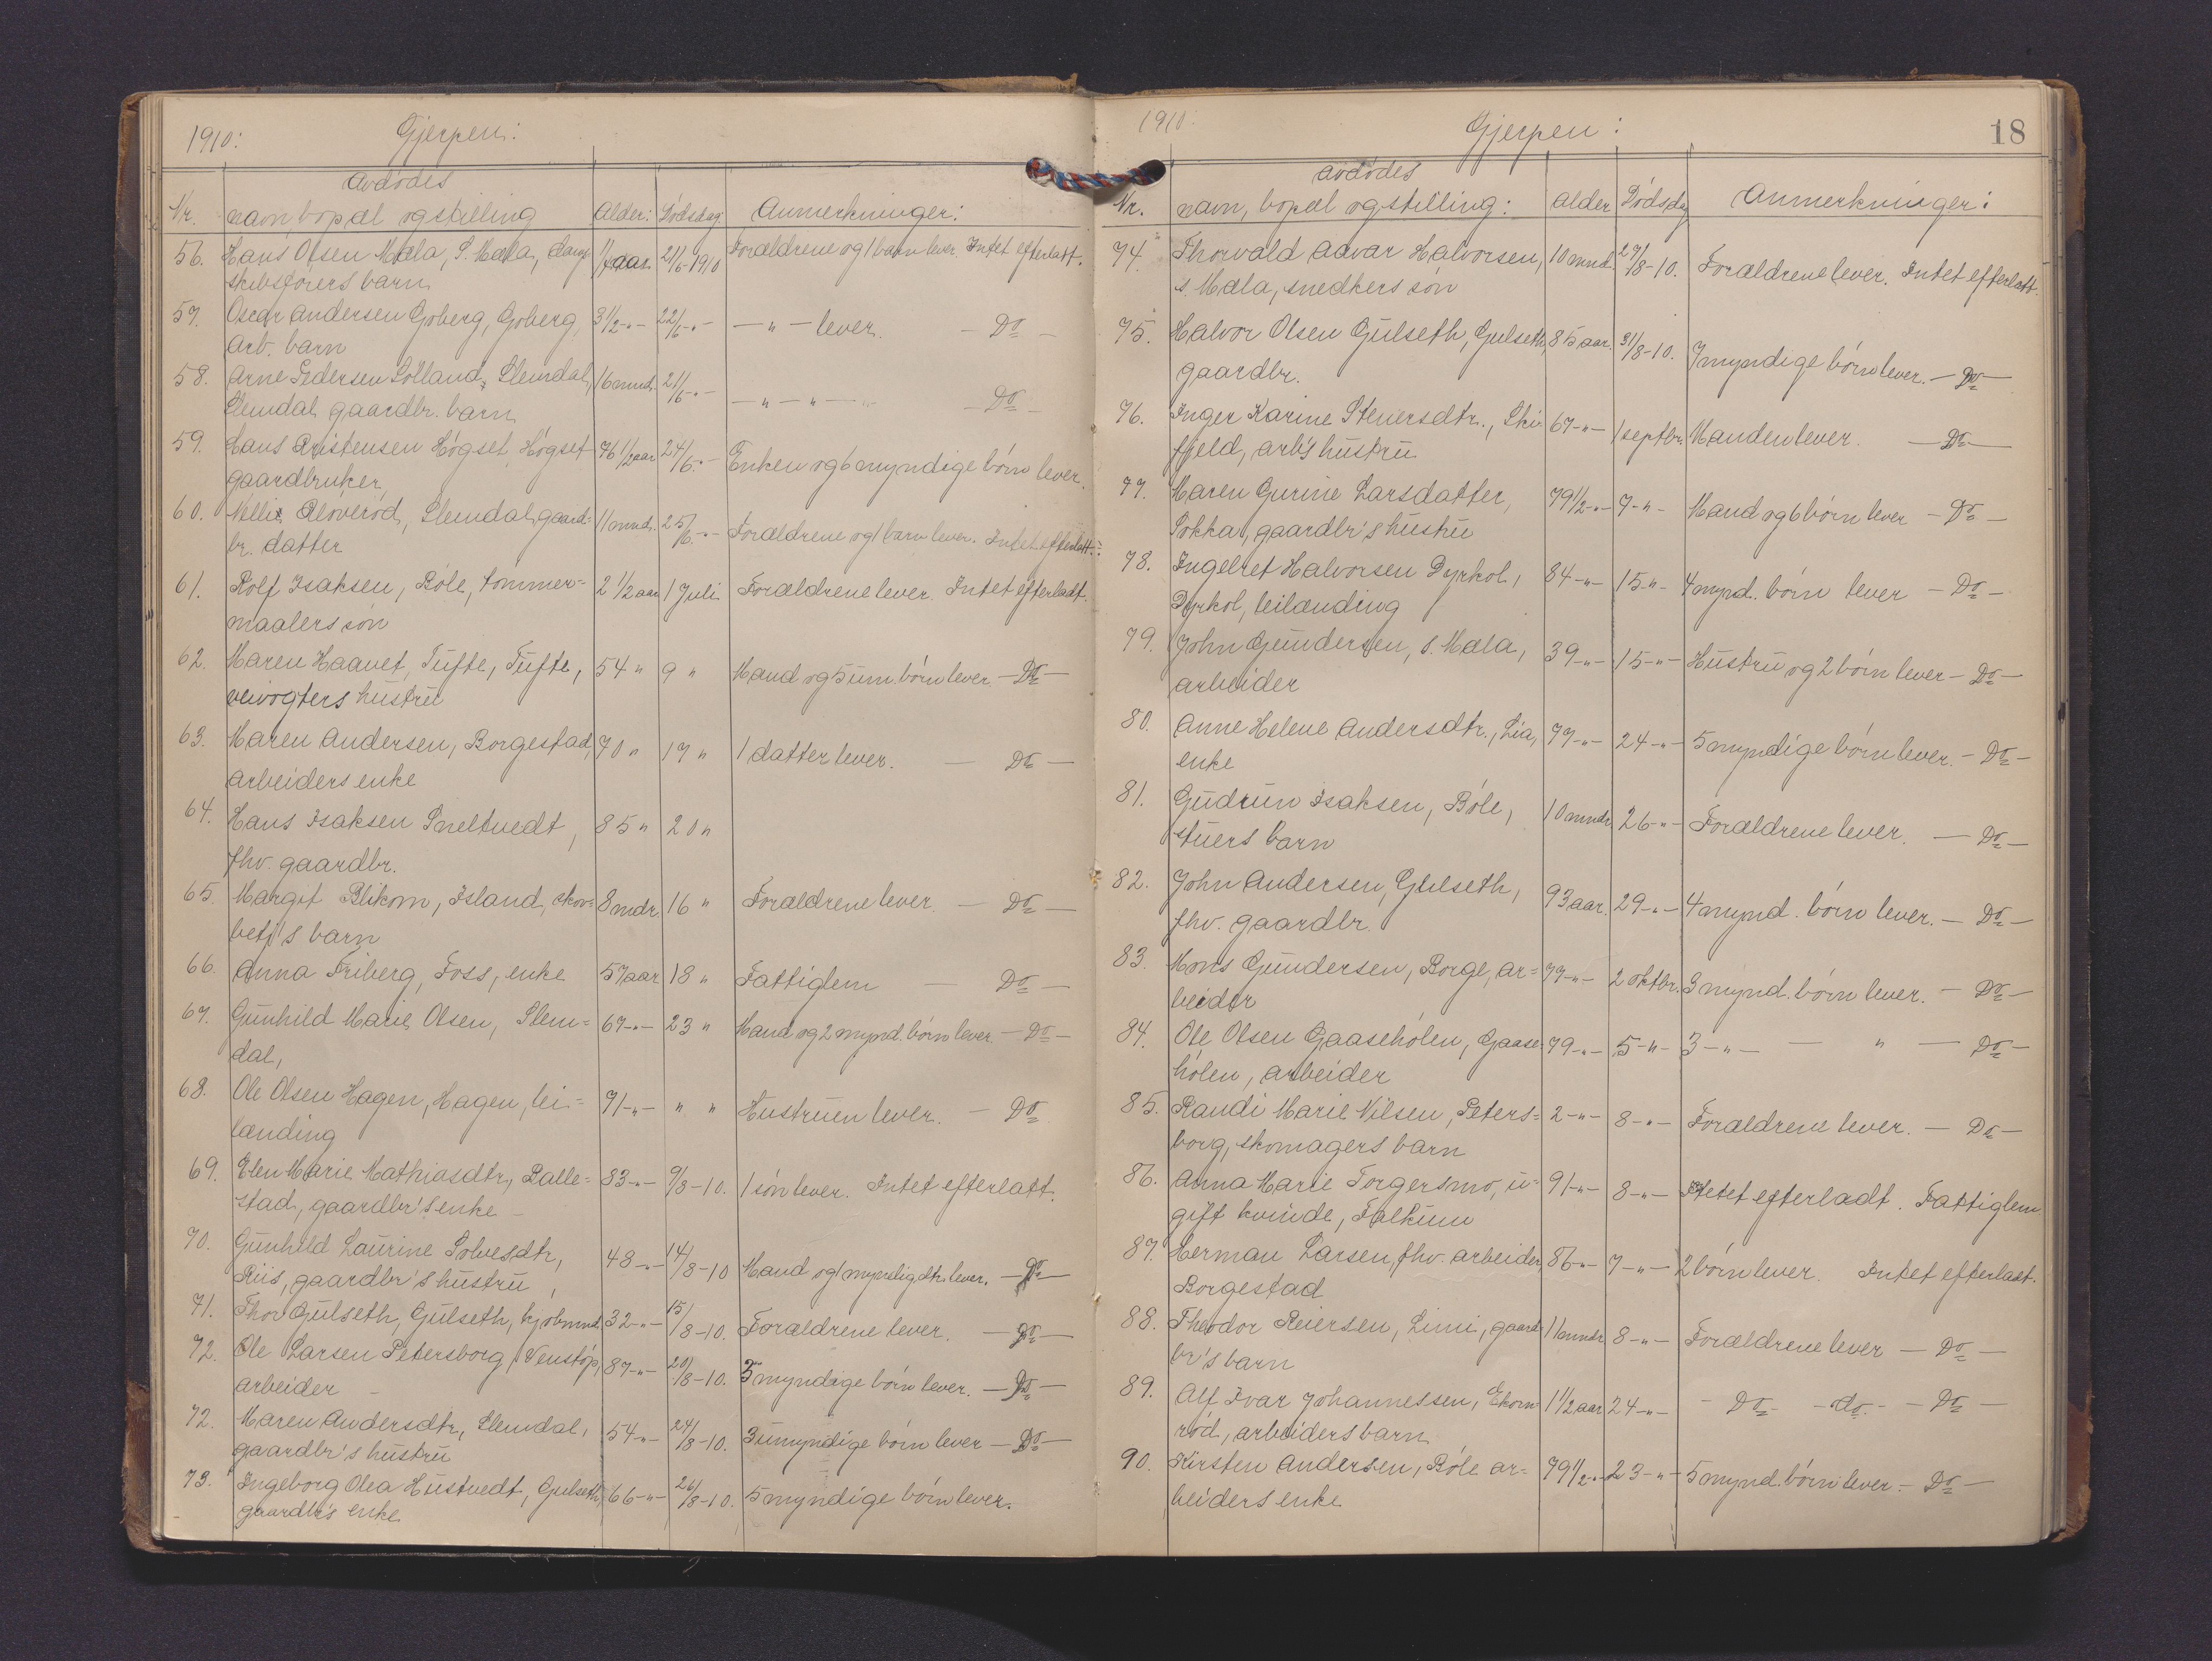 1910: Gjerpen:
Avdödes
Nr. navn, bopæl og stilling Alder: Dödsdag Anmerkninger:
56. Hans Olsen Mæla, S. Mæla, damp- aar 21/6-1910 Forældrene og 1 barn lever. Intet efterlatt.
skibsförers barn
57. Oscar Andersen Goberg, Goberg, 3 1/2 -"- 22/6 -"- -"- lever. - Do -
arb. barn
58. Arne Pedersen Solland, Slemdal, 16 mnd. 21/6 -"- -"- -"- - Do -
Slemdal gaardbr. barn
59. Hans Kristensen Högset, Högset 76 1/2 aar 24/6 -"- Enken og 6 myndige börn lever.
gaardbruker
60. Slemdal, gaard- 11 mnd. 25/6 -"- Forældrene og 1 barn lever. Intet efterlatt.
br. datter
61. Rolf Isaksen, Böle, tömmer- 2 1/2 aar 1 Juli Forældrene lever. Intet efterladt.
maalers sön
62. Maren Haavet, Tufte, Tufte, 54 " 9 " Mand og 5 um. börn lever. - Do -
veivogters hustru
63. Maren Andersen, Borgestad, 70 " 17 " 1 datter lever. - Do -
arbeiders enke
64. Hans Isaksen Sneltvedt, 85 " 20 "
fhv. gaardbr.
65. Margit Blikom, Island, skov- 8 mdr. 16 " Forældrene lever. - Do -
betj's barn
66. Anna Friberg, Foss, enke 57 aar 18 " Fattiglem - Do -
67. Gunhild Marie Olsen, Slem- 67 -"- 23 " Mand og 2 mynd. börn lever. - Do -
dal,
68. Ole Olsen Hagen, Hagen, lei- 71 -"- " " Hustruen lever. - Do
lænding
69. Elen Marie Mathiasdtr, Balle- 83 -"- 9/8-10. 1 sön lever. Intet efterlatt.
stad, gaardbr's enke -
70. Gunhild Laurine Solvesdtr, 48 -"- 14/8-10 Mand og 1 myndig dtr. lever. - Do -
Riis, gaardbr's hustru,
71. Thov Gulseth, Gulseth, kjöbmnd. 32 -"- 15/8-10. Forældrene lever. - Do -
72. Ole Larsen Petersborg, Venstöp, 87 -"- 20/8-10. 3 myndige börn lever. - Do -
arbeider -
72. Maren Andersdtr, Slemdal, 54 -"- 24/8-10. 3 umyndige börn lever - Do -
gaardbr's hustru
73. Ingeborg Olea Hustvedt, Gulseth, 66 -"- 26/8-10. 5 myndige börn lever.
gaardbr's enke
1910: Gjerpen: 18
Avdödes
Nr. navn, bopæl og stilling: Alder Dödsdag Anmerkninger:
74. Thorvald Aavar Halvorsen, 10 mnd. 29/8-10. Forældrene lever. Intet efterlatt.
s. Mæla, snedkers sön
75. Halvor Olsen Gulseth, Gulseth, 85 aar. 31/8-10. 7 myndige börn lever. - Do -
gaardbr.
76. Inger Karine Steuersdtr., Ski- 67 -"- 1 septbr. Manden lever. - Do -
fjeld, arb's hustru
77. Maren Gurine Larsdatter, 79 1/2 -"- 7 -"- Mand og 6 börn lever - Do -
Sokka, gaardbr's hustru
78. Ingebret Halvorsen Dyrkol, 84 -"- 15 -"- 4 mynd. börn lever - Do -
Dyrkol, leilænding
79. John Gundersen, s. Mæla, 39 -"- 15 -"- Hustru og 2 börn lever - Do -
arbeider
80. Anne Helene Andersdtr., Lia, 77 -"- 24 -"- 5 myndige börn lever. - Do -
enke
81. Gudrun Isaksen, Böle, 10 mndr. 26 -"- Forældrene lever. - Do -
stuers barn
82. John Andersen, Gulseth, 93 aar. 29 -"- 4 mynd. börn lever. - Do -
fhv. gaardbr.
83. Mons Gundersen, Borge, ar- 77 -"- 2 oktbr. 3 mynd. börn lever. - Do -
beider
84. Ole Olsen Gaasehölen, Gaase- 79 -"- 5 -"- 3 -"- - " - Do -
hölen, arbeider
85. Randi Marie Nilsen, Peters- 2 -"- 8 -"- Forældrene lever. - Do -
borg, skomagers barn
86. Anna Marie Torgersmo, u- 91 -"- 8 -"- Intet efterladt. Fattiglem
gift kvinde, Falkum
87. Herman Larsen, fhv. arbeider 86 -"- 7 -"- 2 börn lever. Intet efterlatt.
Borgestad
88. Theodor Reiersen, Limi, gaard- 11 mndr 8 -"- Forældrene lever - Do -
br's barn
89. Alf Ivar Johannessen, Ekorn- 1 1/2 aar 24 -"- - Do - - do. - - Do -
röd, arbeiders barn
90. Kirsten Andersen, Böle ar- 79 1/2 -"- 23 -"- 5 mynd. börn lever. - Do -
beiders enke